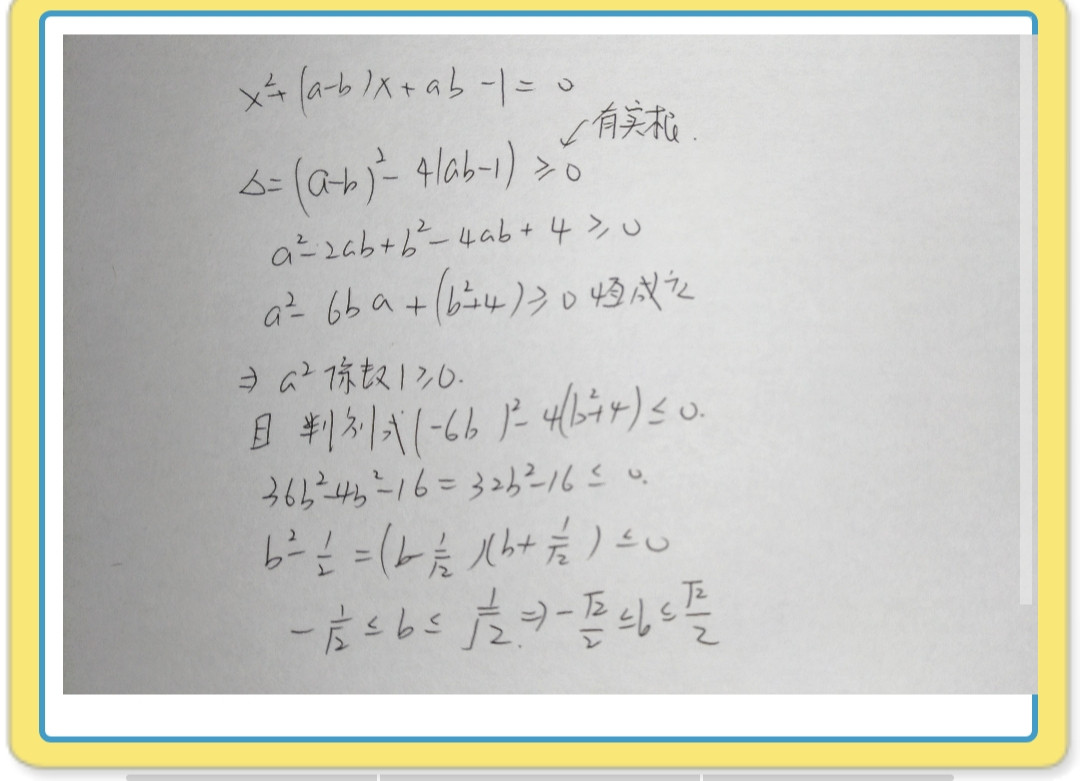 x²+(a-b)x+ab-1=0
有实根.
Δ=(a-b)²-4(ab-1)≥0
a²-2ab+b²-4ab+4≥0
a²-6ba+(b²+4)≥0恒成立
⇒a²系数1≥0.
且 判别式(-6b)²-4(b²+4)≤0.
36b²-4b²-16=32b²-16≤0.
b²-1/2=(b-1/√2)(b+1/√2)≤0
-1/√2≤b≤1/√2.⇒-√2/2≤b≤√2/2